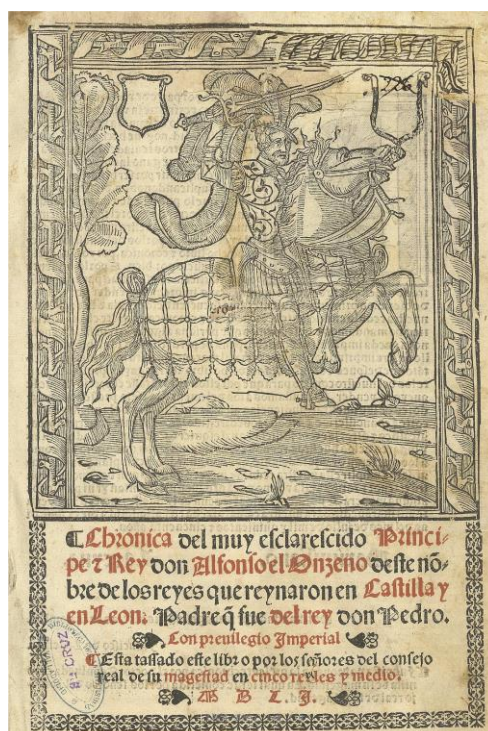 796
❡ Chronica del muy esclarescido Princi-
pe ⁊ Rey don Alfonso el Onzeno deste nõ-
bre de los reyes que reynaron en Castilla y
en Leon. Padre q̃ fue del rey don Pedro.
Con preuilegio Imperial
❡ Esta tassado este libro por los señores del consejo
real de su magestad en cinco reales y medio.
M D L J.
Bᵃ CRUZ